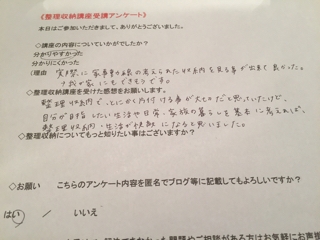 《整理収納講座受講アンケート》
本日はご参加いただきまして、ありがとうございました。
◇講座の内容についていかがでしたか?
分かりやすかった
分かりにくかった
(理由 実際に家事動線の考えられた収納を見る事が出来て良かった。
我が家にもできそうです。
◇整理収納講座を受けた感想をお願いします。
整理収納って、とにかく片付ける事が大切だと思っていたけど、
自分が目指したい生活や日常・家族の暮らしを基本に考えれば、
整理収納・生活が快適になると思いました。
◇整理収納についてもっと知りたい事はございますか?
◇お願い こちらのアンケート内容を匿名でブログ等に記載してもよろしいですか?
はい / いいえ
問題やご相談がある方はお気軽にお声